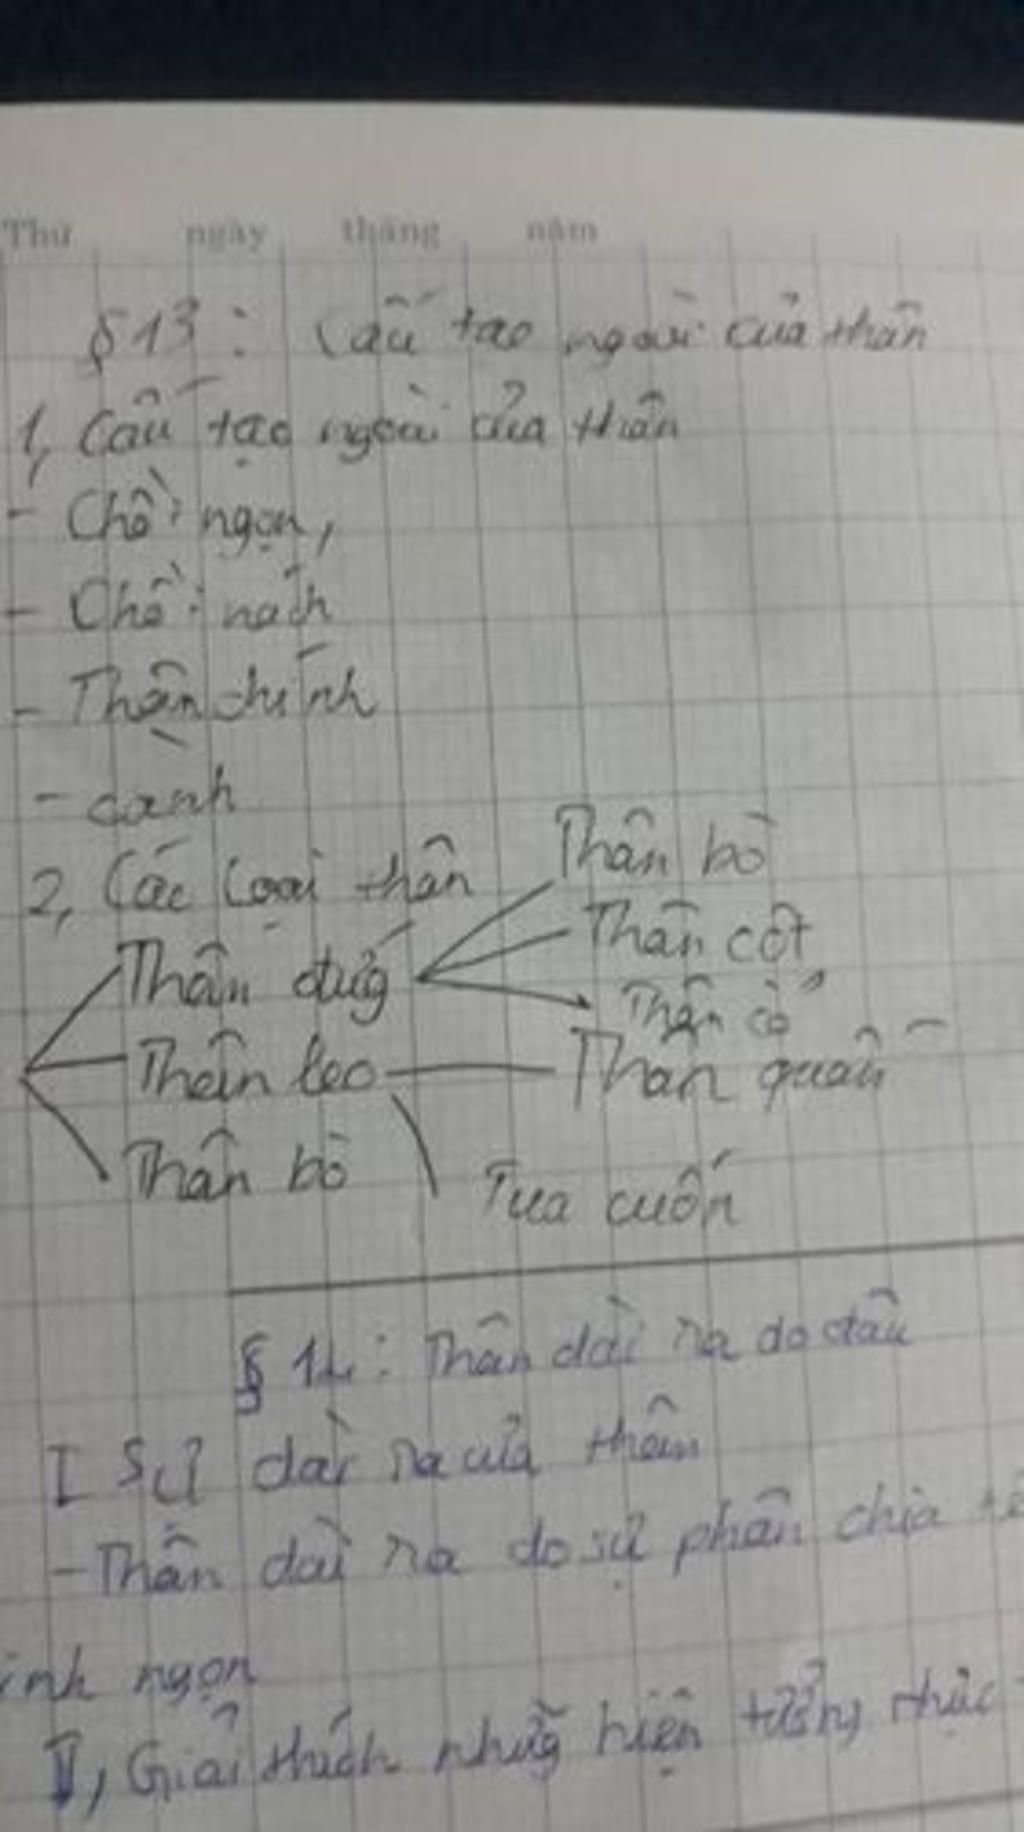 Thứ ngày tháng năm
§13: Cấu tạo ngoài của thân
1, Cấu tạo ngoài của thân
- Chồi ngọn,
- Chồi nách
- Thân chính
- cành
2, Các loại thân
Thân bò
Thân đứng
Thân cột
Thân cỏ
Thân leo
Thân quấn
Thân bò
Tua cuốn
§ 14: Thân dài ra do đâu
I Sự dài ra của thân
- Thân dài ra do sự phân chia tế
inh ngọn
II, Giải thích những hiện tượng thực